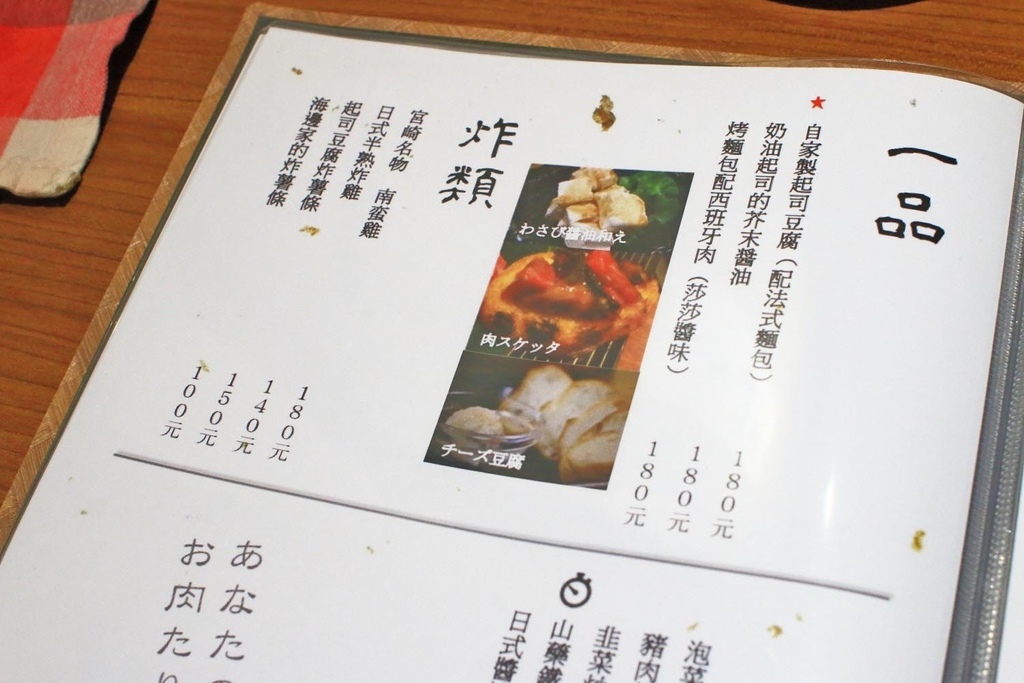 一品
★自家製起司豆腐(配法式麵包) 180元
奶油起司的芥末醬油 180元
烤麵包配西班牙肉(莎莎醬味) 180元
わさび醤油和え
肉スケッタ
チーズ豆腐
炸類
宮崎名物 南蛮雞 180元
日式半熟炸雞 140元
起司豆腐炸薯條 150元
海邊家的炸薯條 100元
泡菜
豬肉
韭菜
山藥鐵
日式醬
あなたの
お肉たり